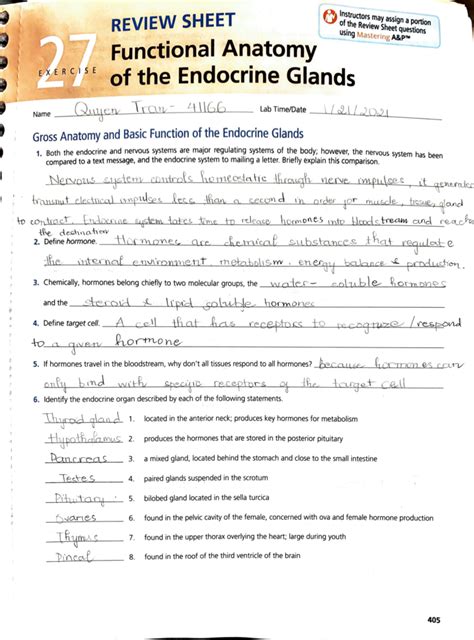 REVIEW SHEET
27
EXERCISE
Functional Anatomy
of the Endocrine Glands
Instructors may assign a portion
of the Review Sheet questions
using Mastering A&P™
Name Quyen Tran - 41166 Lab Time/Date 1/21/2021
Gross Anatomy and Basic Function of the Endocrine Glands
1. Both the endocrine and nervous systems are major regulating systems of the body; however, the nervous system has been
compared to a text message, and the endocrine system to mailing a letter. Briefly explain this comparison.
Nervous system controls homeostatic through nerve impulses, it generates
transmit electrical impulses less than a second in order for muscle, tissue, gland
to contract. Endocrine system takes time to release hormones into bloodstream and reach
the destination
2. Define hormone. Hormones are chemical substances that regulate
the internal environment metabolism, energy balance & production.
3. Chemically, hormones belong chiefly to two molecular groups, the water-soluble hormones
and the steroid & lipid soluble hormones
4. Define target cell. A cell that has receptors to recognize/respond
to a given hormone
5. If hormones travel in the bloodstream, why don't all tissues respond to all hormones? because hormones can
only bind with specific receptors of the target cell
6. Identify the endocrine organ described by each of the following statements.
Thyroid gland 1. located in the anterior neck; produces key hormones for metabolism
Hypothalamus 2. produces the hormones that are stored in the posterior pituitary
Pancreas 3. a mixed gland, located behind the stomach and close to the small intestine
Testes 4. paired glands suspended in the scrotum
Pituitary 5. bilobed gland located in the sella turcica
Ovaries 6. found in the pelvic cavity of the female, concerned with ova and female hormone production
Thymus 7. found in the upper thorax overlying the heart; large during youth
Pineal 8. found in the roof of the third ventricle of the brain
405